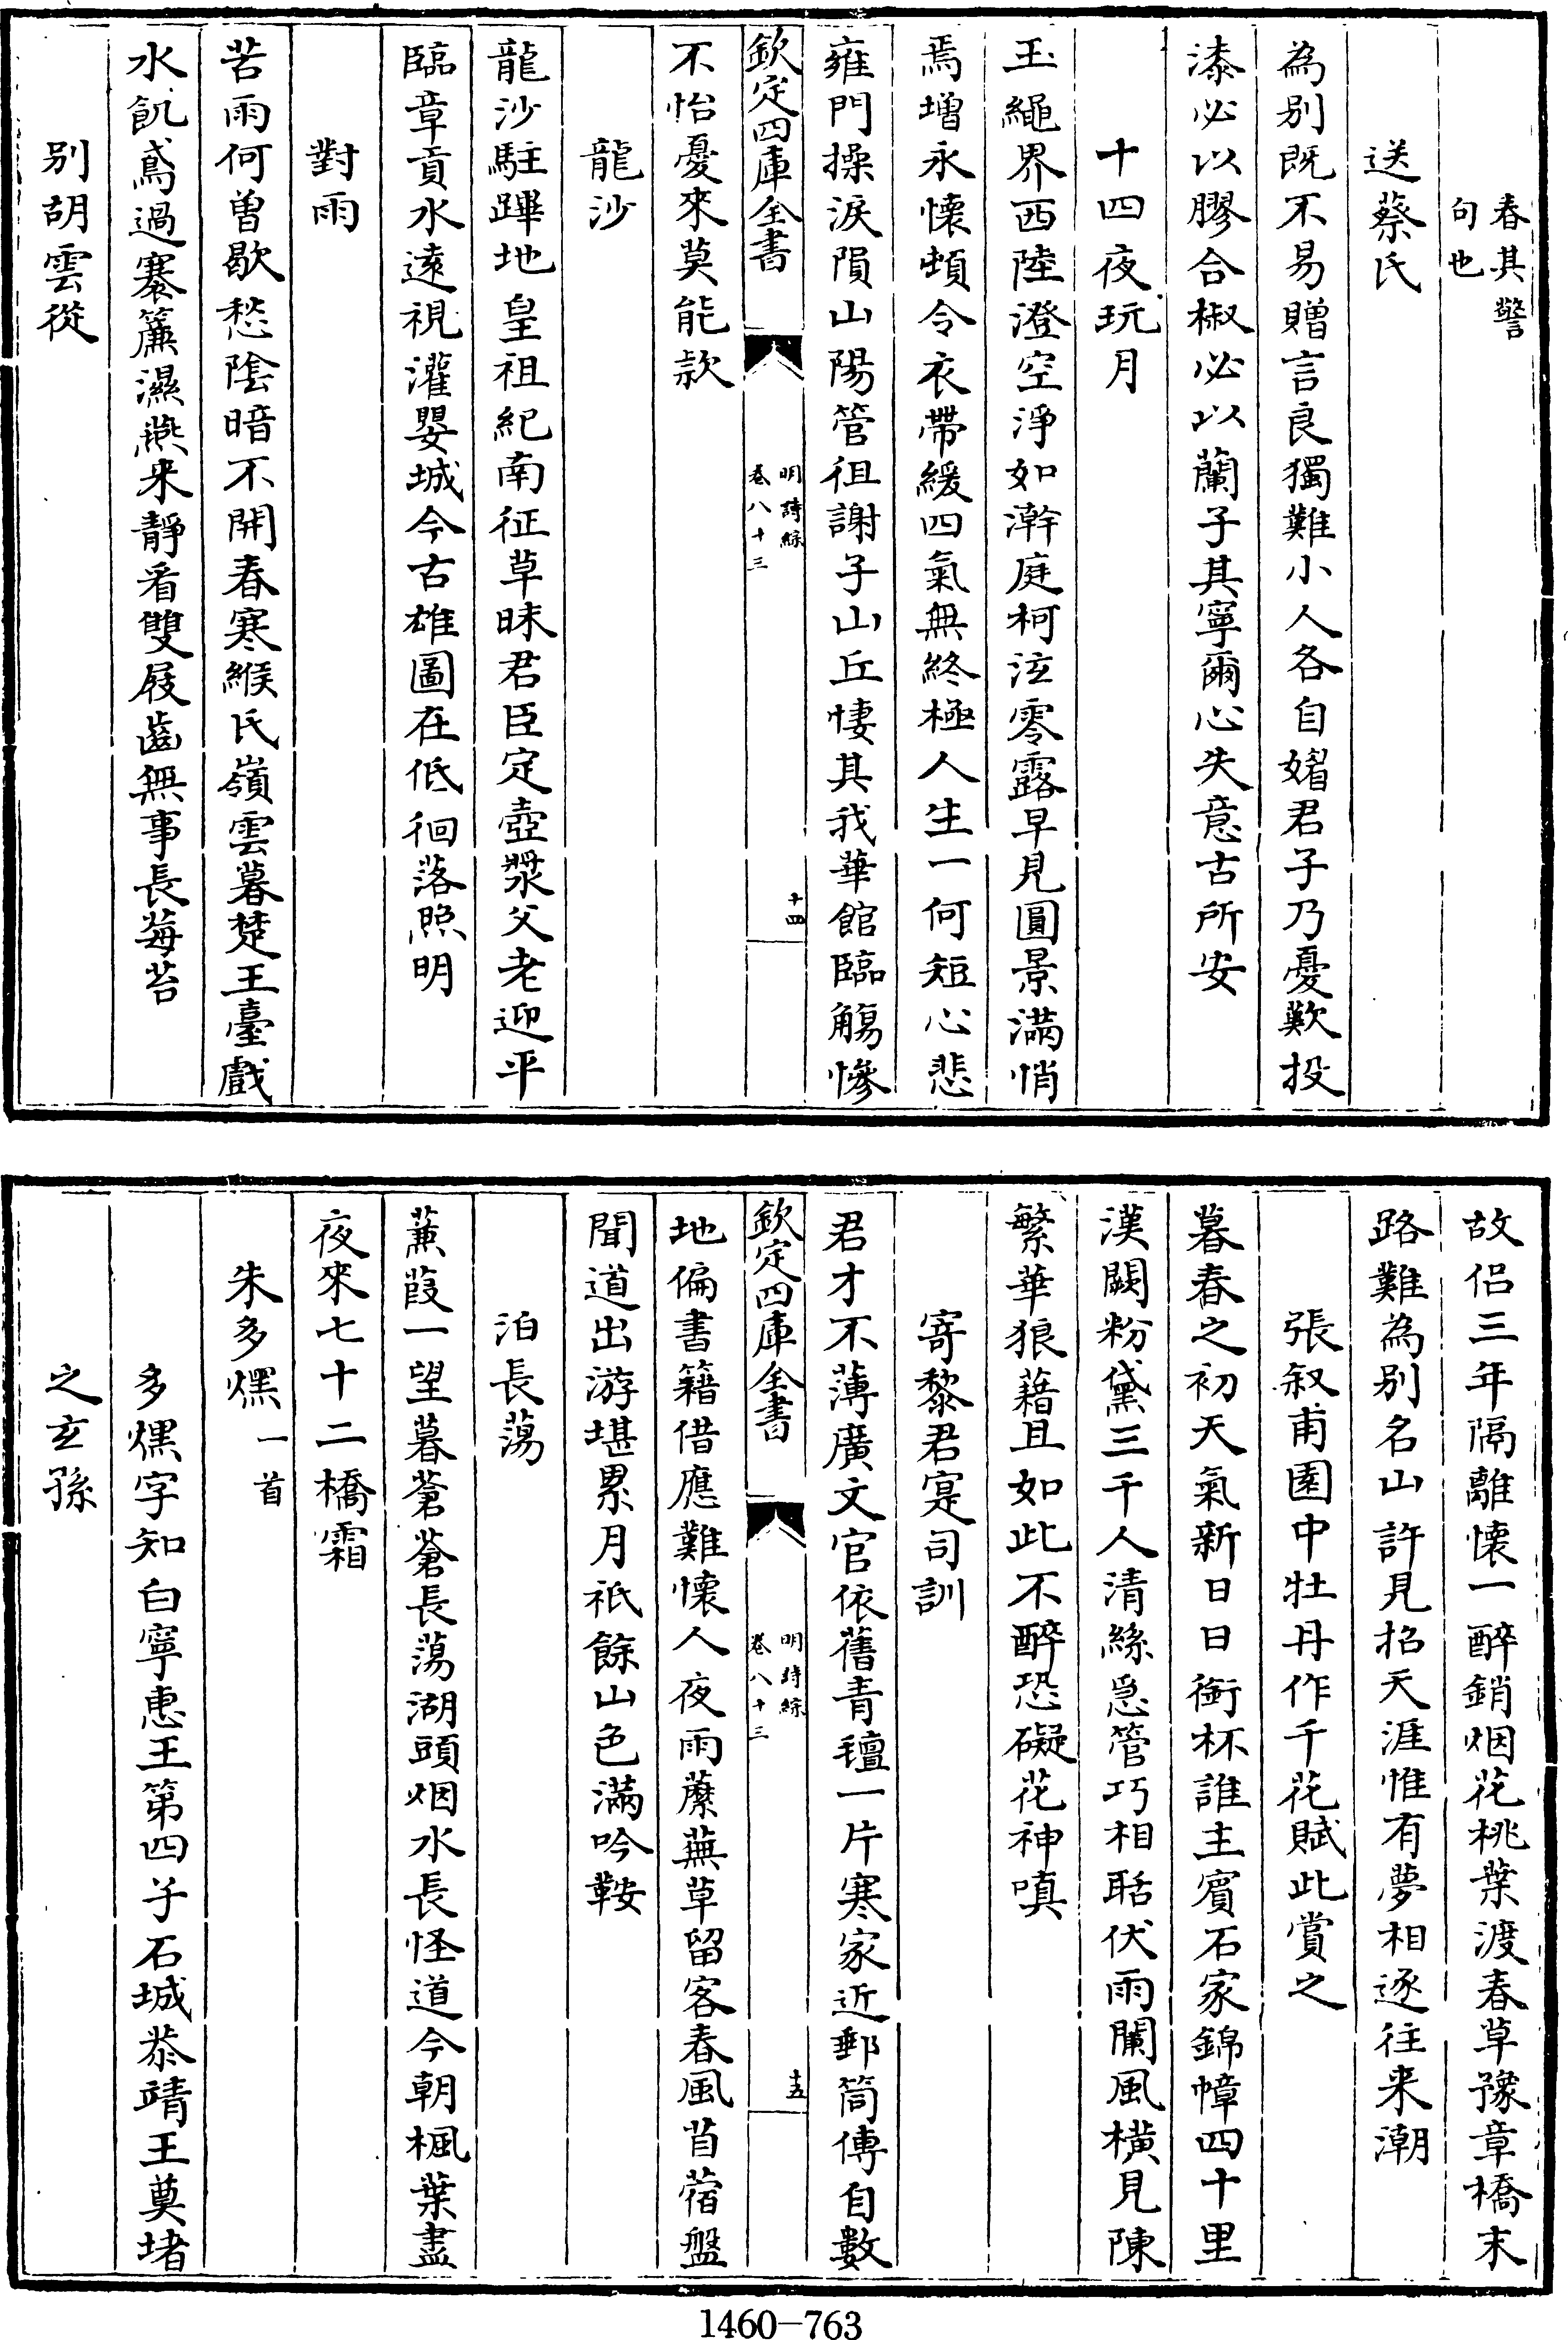 春其警
句也
送蔡氏
為别既不易贈言良獨難小人各自媚君子乃憂歎投
漆必以膠合椒必以蘭子其寧爾心失意古所安
十四夜玩月
玉繩界西陸澄空淨如澣庭柯泫零露早見圓景滿悄
焉增永懷頓令衣帶緩四氣無終極人生一何短心悲
雍門操淚隕山陽管徂謝子山丘悽其我華館臨觴慘
欽定四庫全書
明詩綜
卷八十三
十四
不怡憂來莫能款
龍沙
龍沙駐蹕地皇祖紀南征草昧君臣定壺漿父老迎平
臨章貢水遠視灌嬰城今古雄圖在低徊落照明
對雨
苦雨何曽歇愁隂暗不開春寒緱氏嶺雲暮楚王臺戲
水飢鳶過褰簾濕燕来靜看雙屐齒無事長莓苔
别胡雲從
故侣三年隔離懐一醉銷烟花桃葉渡春草豫章橋末
路難為别名山許見招天涯惟有夢相逐往来潮
張叙甫園中牡丹作千花賦此賞之
暮春之初天氣新日日銜杯誰主賓石家錦幛四十里
漢闕粉黛三千人清絲急管巧相聒伏雨闌風横見陳
繁華狼藉且如此不醉恐礙花神嗔
寄黎君寔司訓
君才不薄廣文官依舊青氊一片寒家近郵筒傳自數
欽定四庫全書
明詩綜
卷八十三
十五
地偏書籍借應難懐人夜雨蘼蕪草留客春風苜蓿盤
聞道出游堪累月祇餘山色滿吟鞍
泊長蕩
蒹葭一望暮蒼蒼長蕩湖頭烟水長怪道今朝楓葉盡
夜來七十二橋霜
朱多熼一首
多熼字知白寧惠王第四子石城恭靖王奠堵
之玄孫
1460-763